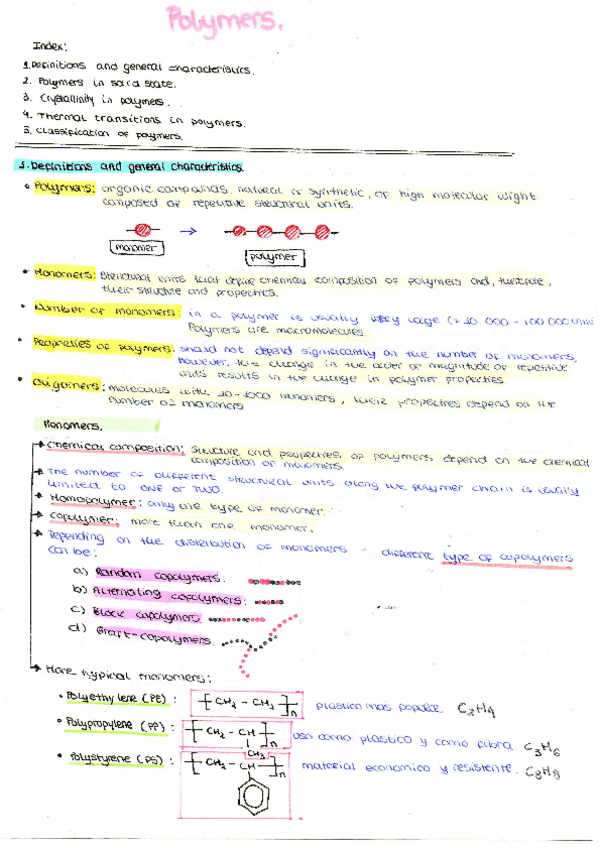 Polymers.
Index:
1. Definitions and general characteristics.
2. Polymers in solid state.
3. Crystallinity in polymers.
4. Thermal transitions in polymers.
5. Classification of polymers.
1. Definitions and general characteristics.
• Polymers: organic compounds, natural or synthetic, of high molecular wight
composed of repetitive structural units.
monomer
polymer
• Monomers: Structural units that define chemical composition of polymers and, therefore,
their structure and properties.
• Number of monomers: in a polymer is usually very large (> 10 000 - 100 000 units
Polymers are macromolecules.
• Properties of polymers: should not depend significantly on the number of monomers,
however, this change in the order of magnitude of repetitive
units results in the change in polymer properties.
• Oligomers: molecules with 10-1000 monomers, their properties depend on the
number of monomers
Monomers.
Chemical composition: Structure and properties of polymers depend on the chemical
composition of monomers.
The number of different structural units along the polymer chain is usually
limited to ONE or TWO.
Homopolymer: only one type of monomer.
Copolymer: more than one monomer.
Depending on the distribution of monomers - different type of copolymers
can be:
a) Random copolymers:
b) Alternating copolymers:
c) Block copolymers
d) Graft-copolymers
More typical monomers:
• Polyethylene (PE): [CH2 - CH2]n plástico mas popular C2H4
• Polypropylene (PP): [CH2 - CH]n uso como plastico y como fibra C3H6
CH3
• Polystyrene (PS): [CH2 - CH]n material economico y resistente. C8H8